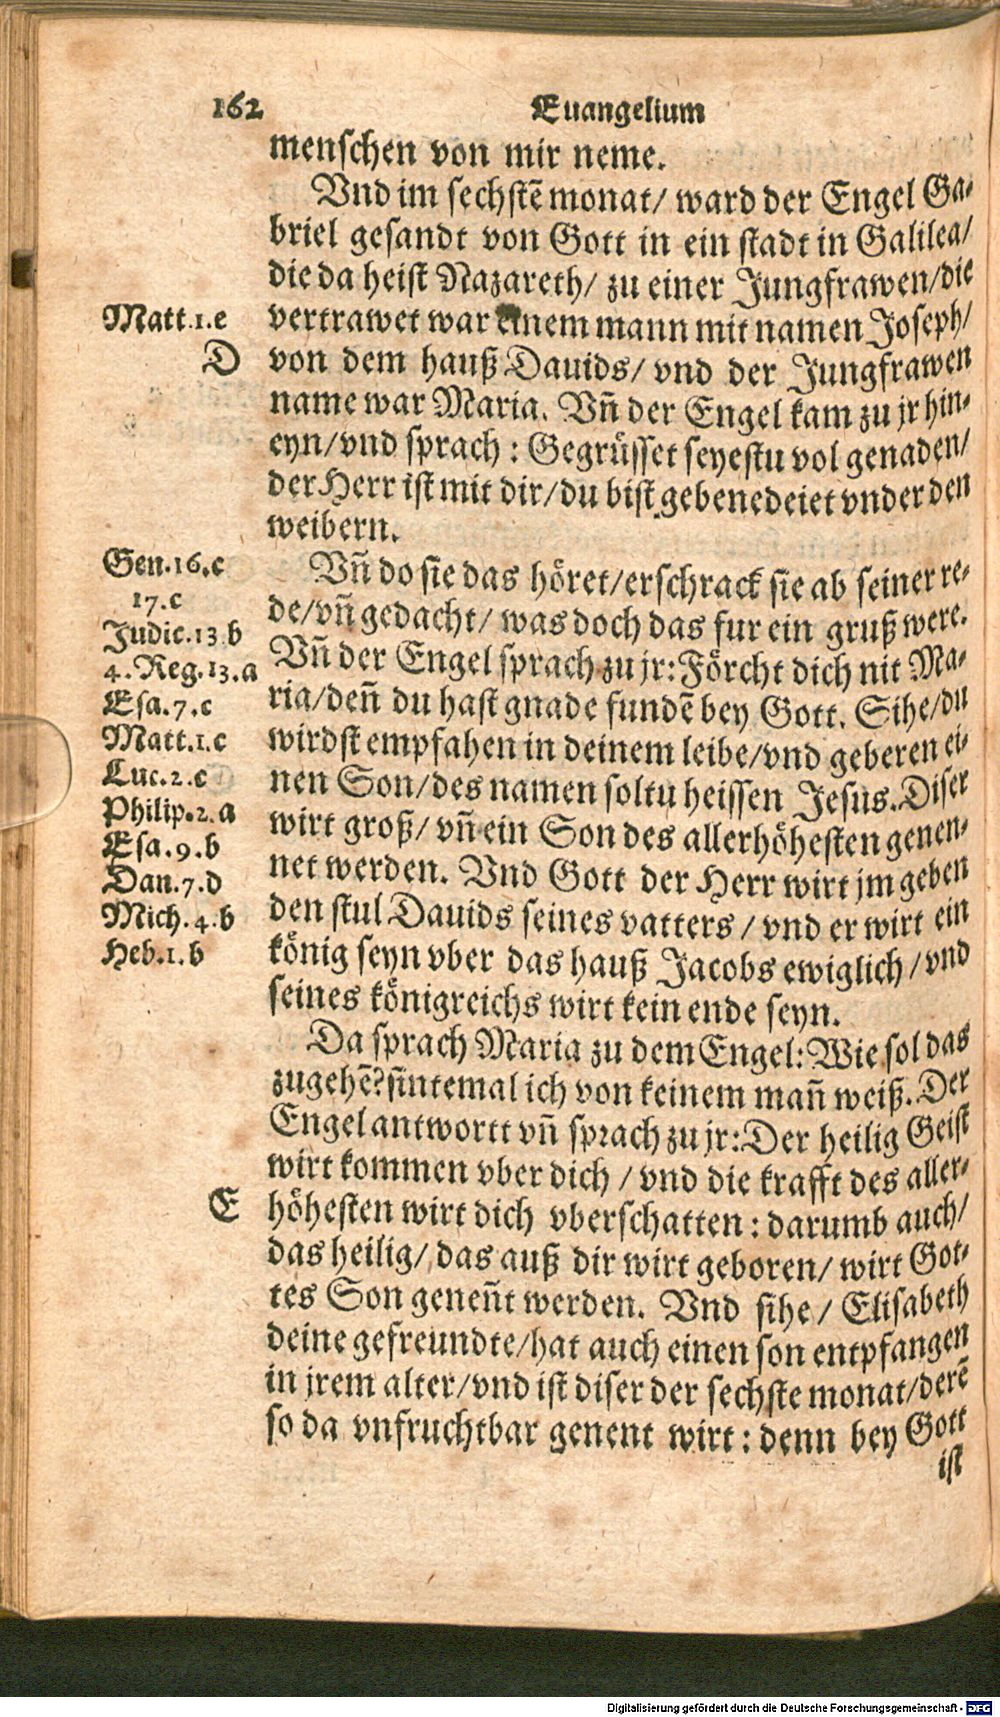 162 Euangelium
menschen von mir neme.
Vnd im sechstē monat/ ward der Engel Ga-
briel gesandt von Gott in ein stadt in Galilea/
die da heist Nazareth/ zu einer Jungfrawen/die
Matt.1.e
vertrawet war einem mann mit namen Joseph/
D
von dem hauß Dauids/ vnd der Jungfrawen
name war Maria. Vn̄ der Engel kam zu jr hin-
eyn/vnd sprach : Gegrüsset seyestu vol genaden/
der Herr ist mit dir/du bist gebenedeiet vnder den
weibern.
Gen.16.c
17.c
Judic.13.b
4.Reg.13.a
Esa.7.c
Matt.1.c
Luc.2.c
Philip.2.a
Esa.9.b
Dan.7.d
Mich.4.b
Heb.1.b
Vn̄ do sie das höret/erschrack sie ab seiner re-
de/vn̄ gedacht/ was doch das fur ein gruß were.
Vn̄ der Engel sprach zu jr: Förcht dich nit Ma-
ria/den̄ du hast gnade fundē bey Gott. Sihe/du
wirdst empfahen in deinem leibe/vnd geberen ei-
nen Son/des namen soltu heissen Jesus. Diser
wirt groß/ vn̄ ein Son des allerhöhesten genen-
net werden. Vnd Gott der Herr wirt jm geben
den stul Dauids seines vatters / vnd er wirt ein
könig seyn vber das hauß Jacobs ewiglich/vnd
seines königreichs wirt kein ende seyn.
Da sprach Maria zu dem Engel: Wie sol das
zugehē? sintemal ich von keinem man̄ weiß. Der
Engel antwortt vn̄ sprach zu jr: Der heilig Geist
wirt kommen vber dich / vnd die krafft des aller-
E
höhesten wirt dich vberschatten : darumb auch/
das heilig/ das auß dir wirt geboren/ wirt Got-
tes Son genen̄t werden. Vnd sihe / Elisabeth
deine gefreundte/hat auch einen son entpfangen
in jrem alter/vnd ist diser der sechste monat/derē
so da vnfruchtbar genent wirt : denn bey Gott
ist
Digitalisierung gefördert durch die Deutsche Forschungsgemeinschaft - DFG